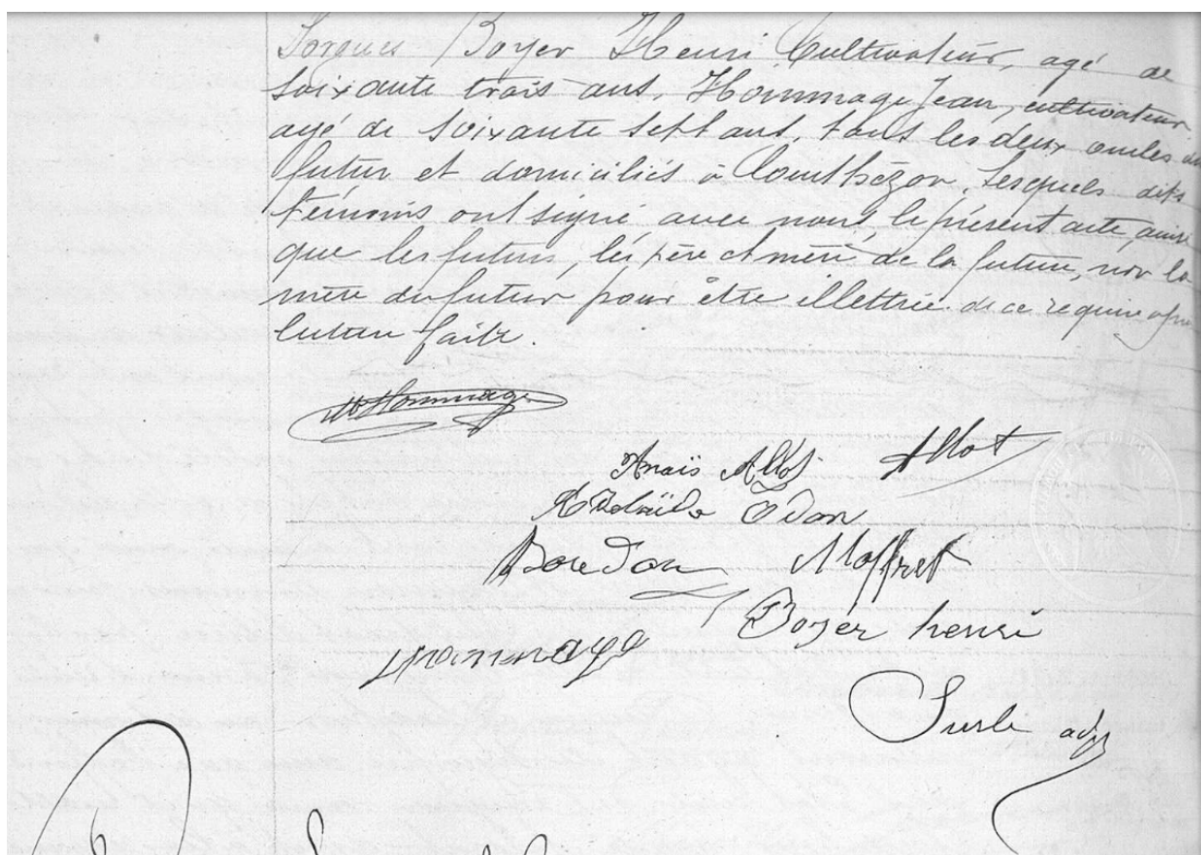 Sorgues, Boyer Henri Cultivateur, agé de
soixante trois ans, Hommage Jean, cultivateur
agé de soixante sept ans, tous les deux oncles du
futur et domiciliés à Courthézon, Lesquels dits
témoins ont signé avec nous le présent acte, ainsi
que les futurs, les père et mère de la future, non la
mère du futur pour être illettrée, de ce requise après
lecture faite.
Hommage
Anaïs Allot Allot
Adelaïde Odon
Bourdon Moffret
Boyer henri
hommage
Surle adj